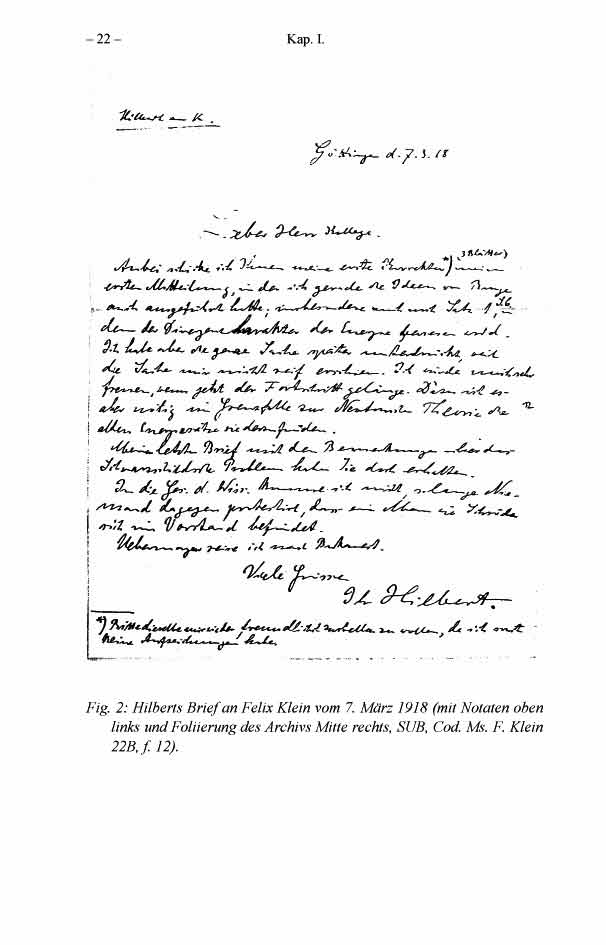 – 22 –
Kap. I.
Hilbert an K.
Göttingen d. 7.3.18
Lieber Herr Kollege.
Anbei schicke ich Ihnen meine erste Korrektur*) (3 Blätter) meiner
ersten Mittheilung, in der ich gerade die Ideen von Runge
auch ausgeführt hatte; insbesondere auch mit Satz 1,
dem der Divergenzcharakter der Energie bewiesen wird.
Ich habe aber die ganze Sache später unterdrückt, weil
die Sache mir nicht reif erschien. Ich würde mich sehr
freuen, wenn jetzt der Fortschritt gelänge. Dazu ist es
aber nötig im Grenzfalle zur Newtonschen Theorie die
12
alten Energiesätze wiederzufinden.
Meinen letzten Brief mit den Bemerkungen über das
Schwarzschildsche Problem haben Sie doch erhalten.
In die Ges. d. Wiss. komme ich nicht, solange Nie-
mand dagegen protestirt, dass ein Mann wie Schröder
sich im Vorstand befindet.
Uebermorgen reise ich nach Bukarest.
Viele Grüsse
Ihr Hilbert.
*) Bitte dieselbe mir wieder freundlichst zustellen zu wollen, da ich sonst
keine Aufzeichnungen habe.
Fig. 2: Hilberts Brief an Felix Klein vom 7. März 1918 (mit Notaten oben
links und Foliierung des Archivs Mitte rechts, SUB, Cod. Ms. F. Klein
22B, f. 12).